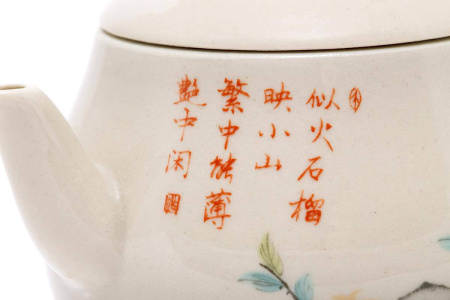 似火石榴
映小山
繁中能薄
艷中闲